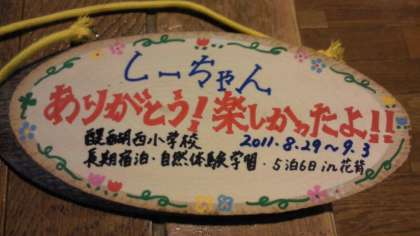 しーちゃん
ありがとう!楽しかったよ!!
醍醐西小学校 2011.8.29〜9.3
長期宿泊・自然体験学習・5泊6日in花背